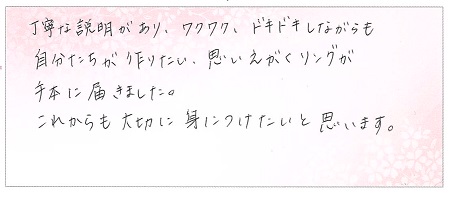 丁寧な説明があり、ワクワク、ドキドキしながらも
自分たちが作りたい、思いえがくリングが
手本に届きました。
これからも大切に身につけたいと思います。